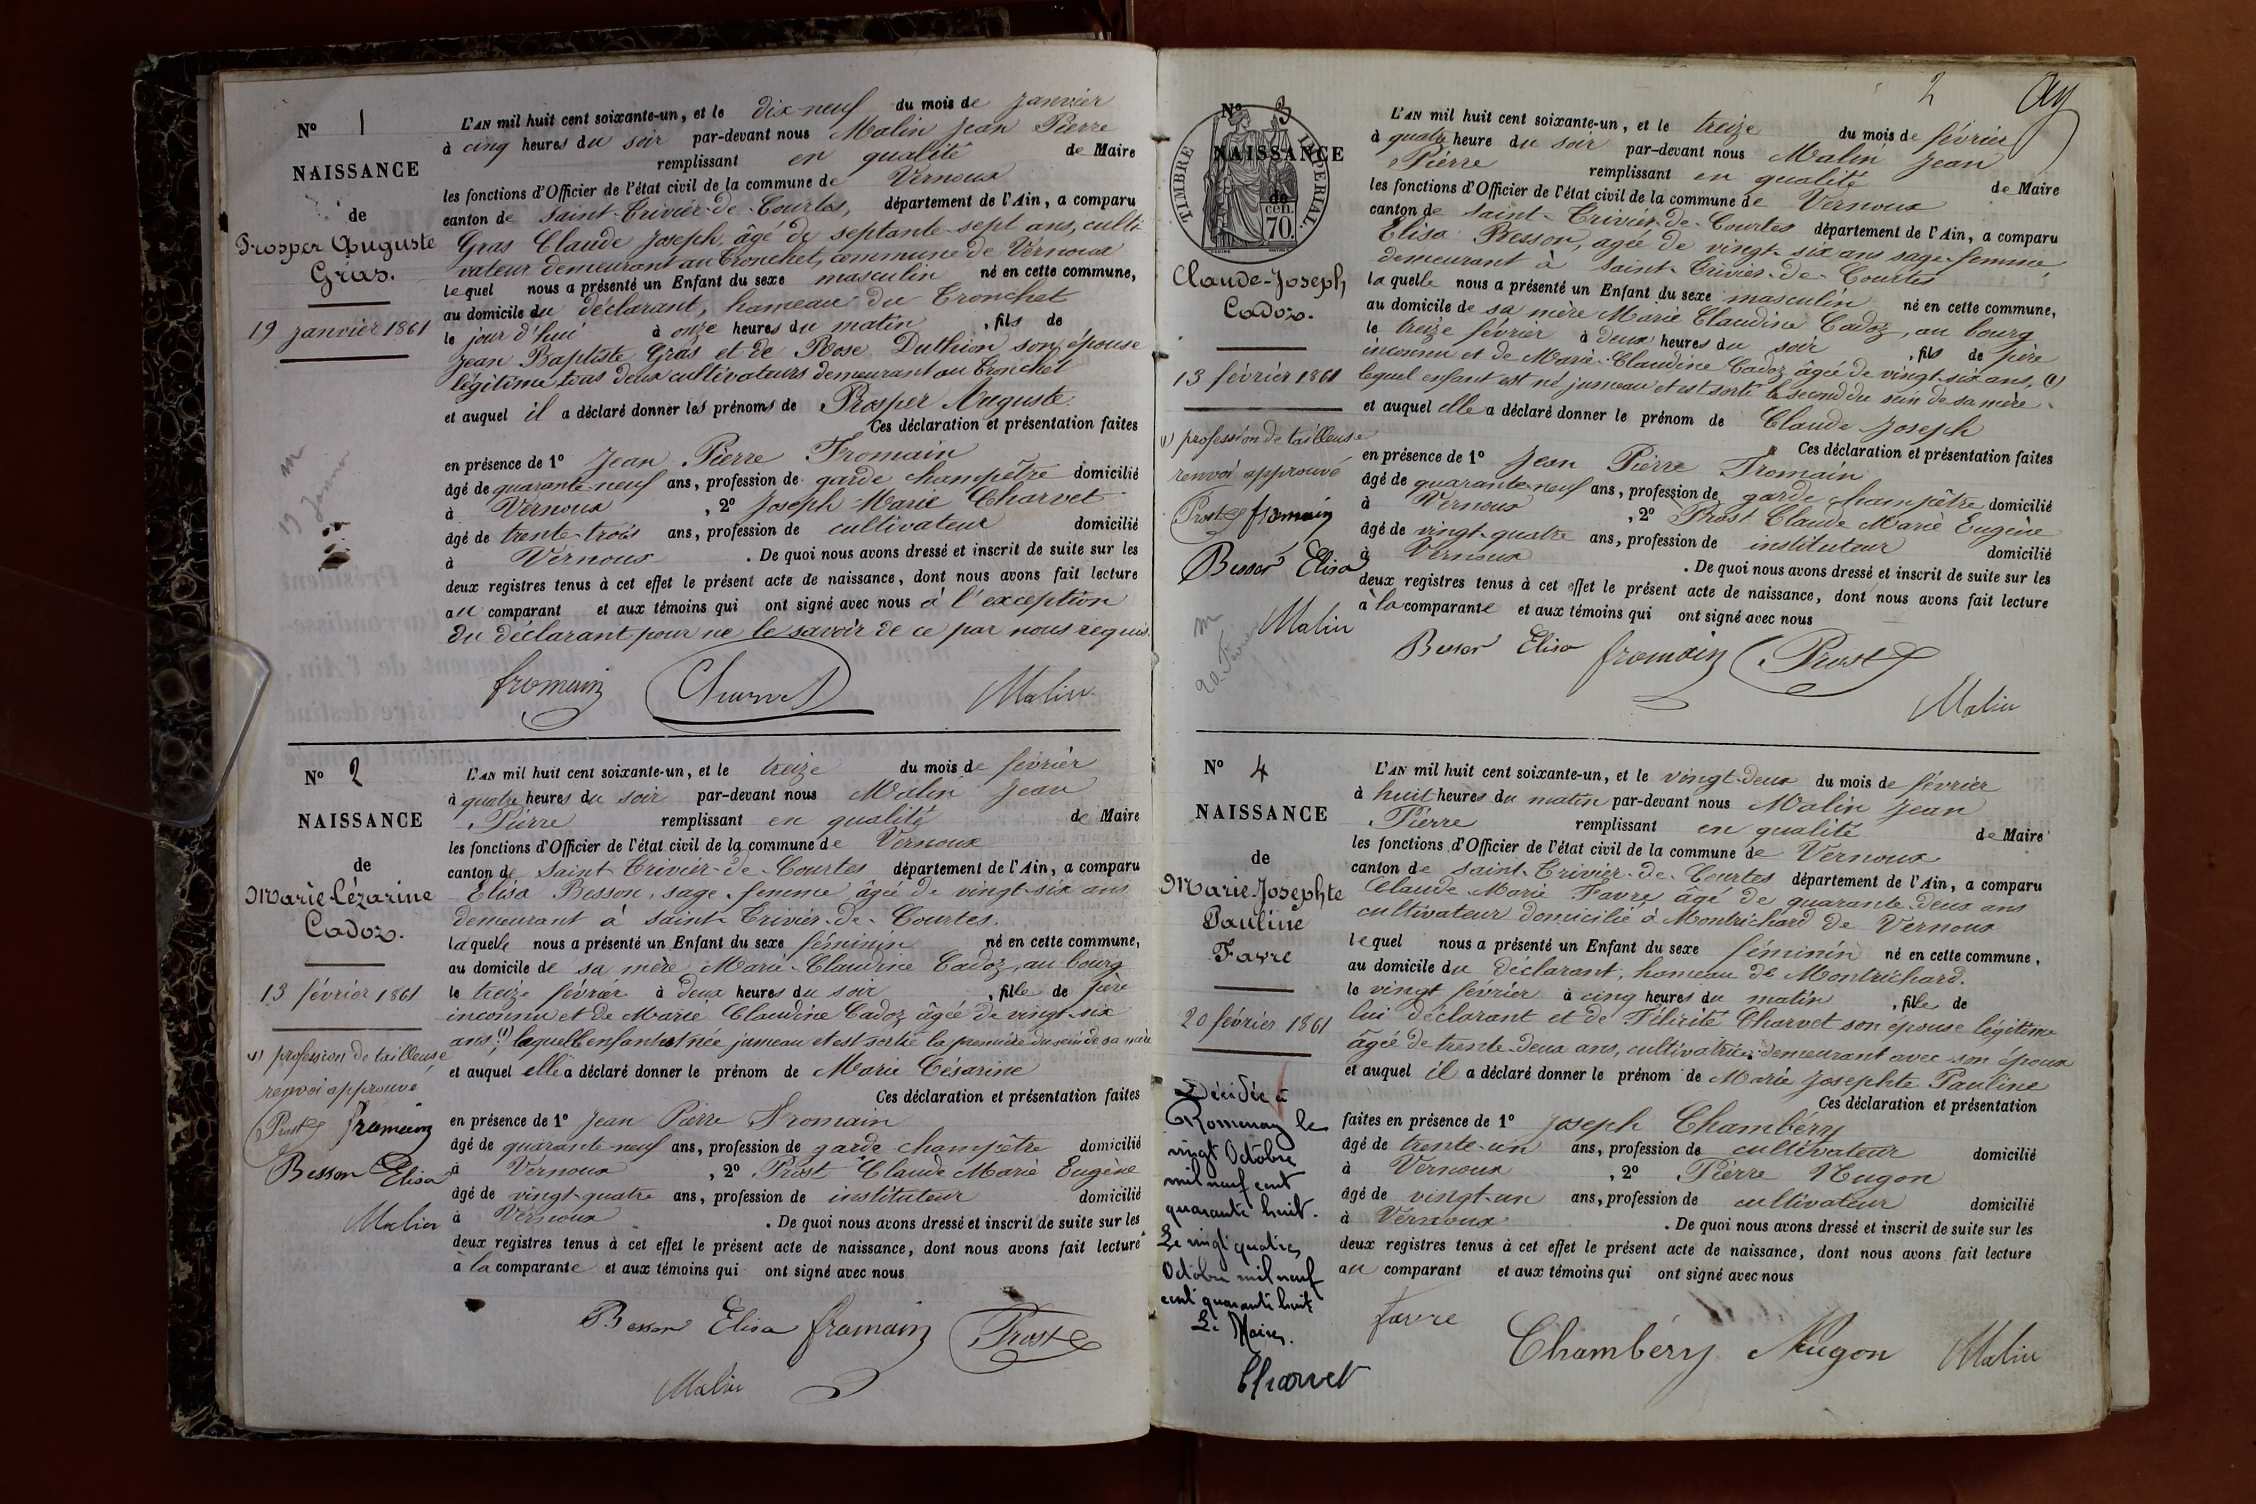 N° 1
NAISSANCE
de
Prosper Auguste
Gras.
19 janvier 1861
L'AN mil huit cent soixante-un, et le dix-neuf du mois de janvier
à cinq heures du soir par-devant nous Malin Jean Pierre
remplissant en qualité de Maire
les fonctions d'Officier de l'état civil de la commune de Vernoux
canton de Saint-Trivier-de-Courtes, département de l'Ain, a comparu
Gras Claude Joseph, âgé de septante-sept ans, culti
vateur demeurant au Tronchet, commune de Vernoux
lequel nous a présenté un Enfant du sexe masculin né en cette commune,
au domicile du déclarant, hameau du Tronchet
le jour d'hui à onze heures du matin, fils de
Jean Baptiste Gras et de Rose Duthion son épouse
légitime tous deux cultivateurs demeurant au Tronchet
et auquel il a déclaré donner les prénoms de Prosper Auguste.
Ces déclaration et présentation faites
en présence de 1° Jean Pierre Fromain
âgé de quarante-neuf ans, profession de garde champêtre domicilié
à Vernoux, 2° Joseph-Marie Charvet
âgé de trente-trois ans, profession de cultivateur domicilié
à Vernoux. De quoi nous avons dressé et inscrit de suite sur les
deux registres tenus à cet effet le présent acte de naissance, dont nous avons fait lecture
au comparant et aux témoins qui ont signé avec nous à l'exception
du déclarant pour ne le savoir de ce par nous requis.
fromain Charvet Malin
N° 2
NAISSANCE
de
Marie Cézarine
Cadoz.
13 février 1861
(1) profession de tailleuse
renvoi approuvé
Prost fromain
Besson Elisa
Malin
L'AN mil huit cent soixante-un, et le treize du mois de février
à quatre heures du soir par-devant nous Malin Jean
Pierre remplissant en qualité de Maire
les fonctions d'Officier de l'état civil de la commune de Vernoux
canton de Saint-Trivier-de-Courtes département de l'Ain, a comparu
Elisa Besson, sage-femme âgée de vingt-six ans
demeurant à Saint-Trivier-de-Courtes.
laquelle nous a présenté un Enfant du sexe féminin né en cette commune,
au domicile de sa mère Marie-Claudine Cadoz, au bourg
le treize février à deux heures du soir, fille de père
inconnu et de Marie Claudine Cadoz âgée de vingt-six
ans (1), laquelle enfant est née jumeau et est sortie la première du sein de sa mère
et auquel elle a déclaré donner le prénom de Marie Césarine
Ces déclaration et présentation faites
en présence de 1° Jean Pierre Fromain
âgé de quarante-neuf ans, profession de garde champêtre domicilié
à Vernoux, 2° Prost Claude Marie Eugène
âgé de vingt-quatre ans, profession de instituteur domicilié
à Vernoux. De quoi nous avons dressé et inscrit de suite sur les
deux registres tenus à cet effet le présent acte de naissance, dont nous avons fait lecture
à la comparante et aux témoins qui ont signé avec nous
Besson Elisa fromain Prost
Malin
2
TIMBRE IMPÉRIAL
cen. 70.
N° 3
NAISSANCE
de
Claude-Joseph
Cadoz.
13 février 1861
(1) profession de tailleuse
renvoi approuvé
Prost fromain
Besson Elisa
Malin
20 Février
L'AN mil huit cent soixante-un, et le treize du mois de février
à quatre heure du soir par-devant nous Malin Jean
Pierre remplissant en qualité de Maire
les fonctions d'Officier de l'état civil de la commune de Vernoux
canton de Saint-Trivier-de-Courtes département de l'Ain, a comparu
Elisa Besson, agée de vingt-six ans sage-femme,
demeurant à Saint-Trivier-de-Courtes
laquelle nous a présenté un Enfant du sexe masculin né en cette commune,
au domicile de sa mère Marie Claudine Cadoz, au bourg
le treize février à deux heures du soir, fils de père
inconnu et de Marie-Claudine Cadoz âgée de vingt-six ans, (1)
lequel enfant est né jumeau et est sorti le second du sein de sa mère.
et auquel elle a déclaré donner le prénom de Claude Joseph
Ces déclaration et présentation faites
en présence de 1° Jean Pierre Fromain
âgé de quarante-neuf ans, profession de garde champêtre domicilié
à Vernoux, 2° Prost Claude Marie Eugène
âgé de vingt-quatre ans, profession de instituteur domicilié
à Vernoux. De quoi nous avons dressé et inscrit de suite sur les
deux registres tenus à cet effet le présent acte de naissance, dont nous avons fait lecture
à la comparante et aux témoins qui ont signé avec nous
Besson Elisa fromain Prost
Malin
N° 4
NAISSANCE
de
Marie-Josephte
Pauline
Favre
20 février 1861
Décédée à
Romenay le
vingt Octobre
mil neuf cent
quarante huit.
Le vingt quatre
Octobre mil neuf
cent quarante huit
Le Maire.
Charvet
L'AN mil huit cent soixante-un, et le vingt-deux du mois de février
à huit heures du matin par-devant nous Malin Jean
Pierre remplissant en qualité de Maire
les fonctions d'Officier de l'état civil de la commune de Vernoux
canton de Saint-Trivier-de-Courtes département de l'Ain, a comparu
Claude-Marie Favre âgé de quarante-deux ans
cultivateur domicilié à Montrichard de Vernoux
lequel nous a présenté un Enfant du sexe féminin né en cette commune,
au domicile du déclarant, hameau de Montrichard.
le vingt février à cinq heures du matin, fille de
lui déclarant et de Félicité Charvet son épouse légitime
âgée de trente-deux ans, cultivatrice demeurant avec son époux
et auquel il a déclaré donner le prénom de Marie Josephte Pauline
Ces déclaration et présentation
faites en présence de 1° Joseph Chambéry
âgé de trente-un ans, profession de cultivateur domicilié
à Vernoux, 2° Pierre Nugon
âgé de vingt-un ans, profession de cultivateur domicilié
à Vernoux. De quoi nous avons dressé et inscrit de suite sur les
deux registres tenus à cet effet le présent acte de naissance, dont nous avons fait lecture
au comparant et aux témoins qui ont signé avec nous
favre Chambéry Nugon Malin